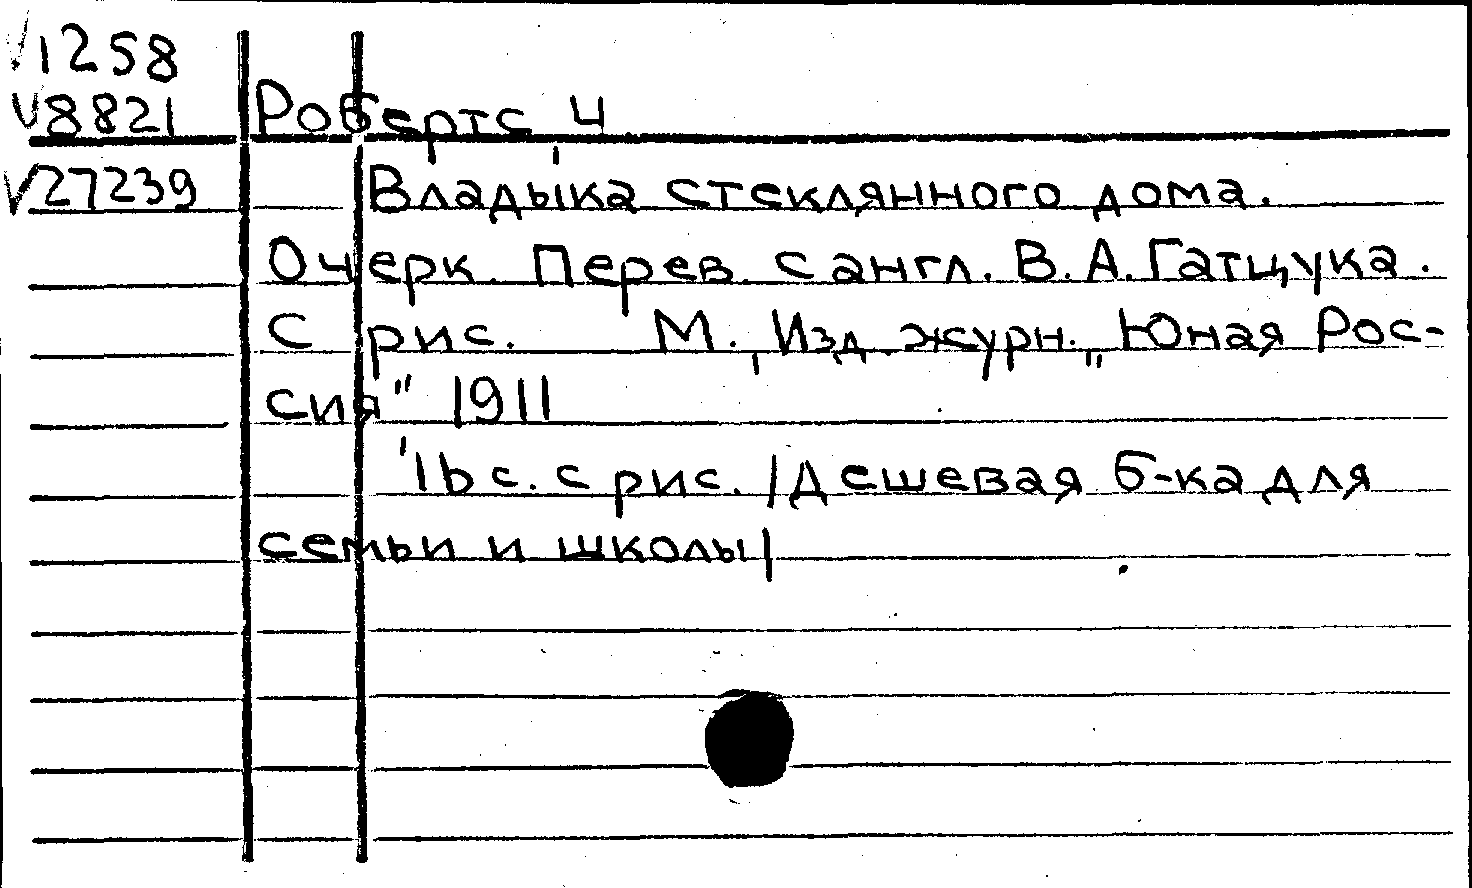 √1258
√8821 Робертс, Ч
√27239 Владыка стеклянного дома.
Очерк. Перев. с англ. В.А.Гатцука.
С рис. М., Изд. журн. „Юная Рос-
сия" 1911
16 с. с рис. /Дешевая б-ка для
семьи и школы/